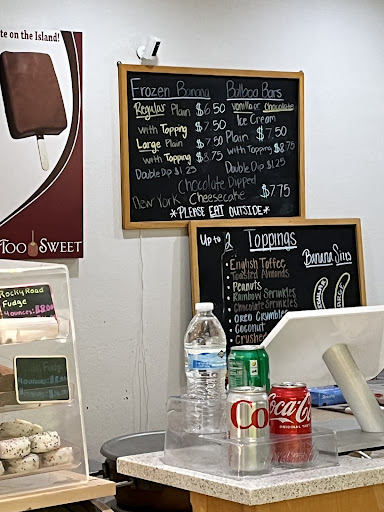 te on the Island!
TOO SWEET
Frozen Banana
Regular Plain $6.50
with Topping $7.50
Large Plain $7.50
with Topping $8.75
Double Dip $1.25
Balboa Bars
Vanilla or Chocolate
Ice Cream
Plain $7.50
with Topping $8.75
Double Dip $1.25
Chocolate Dipped
New York Cheesecake $7.75
*PLEASE EAT OUTSIDE*
Up to 2 Toppings
English Toffee
Toasted Almonds
Peanuts
Rainbow Sprinkles
Chocolate Sprinkles
Oreo Crumbles
Coconut
Crushe
Banana Sizes
Rocky Road
Fudge
4 ounces:
Co
Coca-Cola
ORIGINAL TASTE